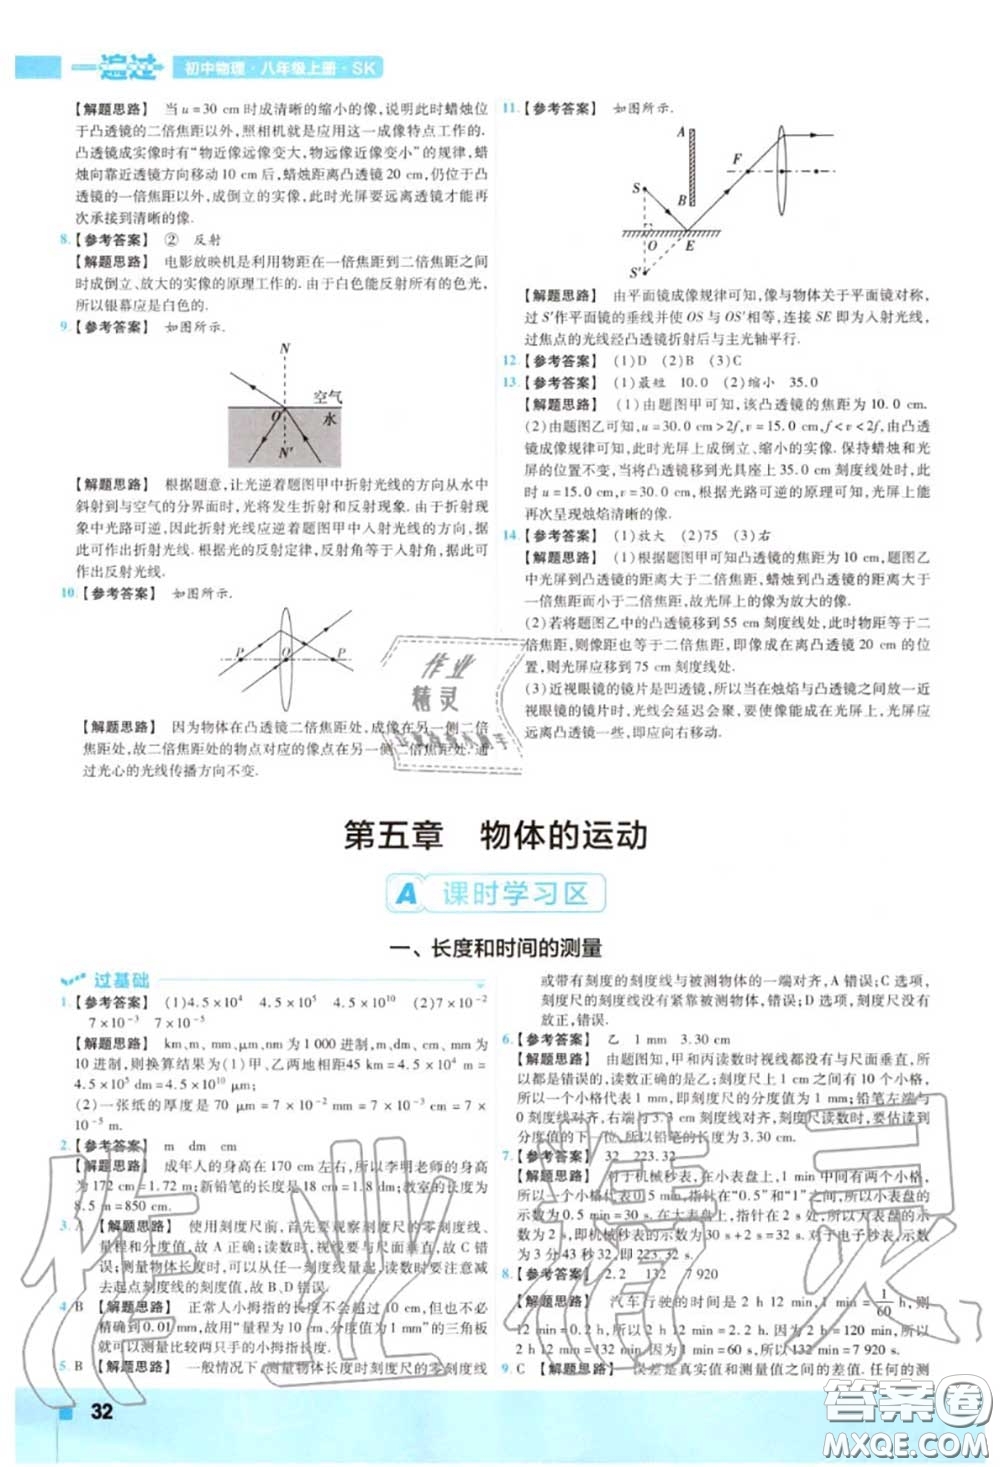 一遍过 初中物理·八年级上册·SK
【解题思路】 当 u=30 cm 时成清晰的缩小的像,说明此时蜡烛位
于凸透镜的二倍焦距以外,照相机就是应用这一成像特点工作的.
凸透镜成实像时有“物近像远像变大,物远像近像变小”的规律,蜡
烛向靠近透镜方向移动 10 cm 后,蜡烛距离凸透镜 20 cm,仍位于凸
透镜的一倍焦距以外,成倒立的实像,此时光屏要远离透镜才能再
次承接到清晰的像.
8.【参考答案】 ② 反射
【解题思路】 电影放映机是利用物距在一倍焦距到二倍焦距之间
时成倒立、放大的实像的原理工作的.由于白色能反射所有的色光,
所以银幕应是白色的.
9.【参考答案】 如图所示.
N
空气
O
水
N′
【解题思路】 根据题意,让光逆着题图甲中折射光线的方向从水中
斜射到与空气的分界面时,光将发生折射和反射.由于在折射现
象中光路可逆,因此折射光线应逆着题图甲中入射光线的方向,据
此可作出折射光线.根据光的反射定律,反射角等于入射角,据此可
作出反射光线.
10.【参考答案】 如图所示.
P O P
【解题思路】 因为物体在凸透镜二倍焦距处,成像在另一侧二倍
焦距处,故二倍焦距处的物点对应的像点在另一侧二倍焦距处.通
过光心的光线传播方向不变.
11.【参考答案】 如图所示.
A
F
S
B
O E
S′
【解题思路】 由平面镜成像规律可知,像与物体关于平面镜对称,
过 S′作平面镜的垂线并使 OS 与 OS′相等,连接 SE 即为入射光线,
过焦点的光线经凸透镜折射后与主光轴平行.
12.【参考答案】 (1)D (2)B (3)C
13.【参考答案】 (1)最短 10.0 (2)缩小 35.0
【解题思路】 (1)由题图甲可知,该凸透镜的焦距为 10.0 cm.
(2)由题图乙可知,u=30.0 cm>2f,v=15.0 cm,f<v<2f,由凸透
镜成像规律可知,此时光屏上成倒立、缩小的实像.保持蜡烛和光
屏的位置不变,当将凸透镜移到光具座上 35.0 cm 刻度线处时,此
时 u=15.0 cm,v=30.0 cm,根据光路可逆的原理可知,光屏上能
再次呈现烛焰清晰的像.
14.【参考答案】 (1)放大 (2)75 (3)右
【解题思路】 (1)根据题图甲可知凸透镜的焦距为 10 cm,题图乙
中光屏到凸透镜的距离大于二倍焦距,蜡烛到凸透镜的距离大于
一倍焦距而小于二倍焦距,故光屏上的像为放大的像.
(2)若将题图乙中的凸透镜移到 55 cm 刻度线处,此时物距等于二
倍焦距,则像距也等于二倍焦距,即像成在凸透镜 20 cm 的位置
处,则光屏应移到 75 cm 刻度线处.
(3)近视眼镜的镜片是凹透镜,所以当在烛焰与凸透镜间放一近
视眼镜的镜片时,光线会延迟会聚,要想像能成在光屏上,光屏应
远离凸透镜一些,即应向右移动.
作业
精灵
第五章 物体的运动
A 课时学习区
一、长度和时间的测量
过基础
1.【参考答案】 (1)4.5×10⁴ 4.5×10⁵ 4.5×10¹⁰ (2)7×10⁻²
7×10⁻³ 7×10⁻⁵
【解题思路】 km,m、mm,μm,nm 为 1 000 进制,m、dm、cm、mm 为
10 进制,则换算结果为(1)甲、乙两地相距 45 km=4.5×10⁴ m=
4.5×10⁵ dm=4.5×10¹⁰ μm;
(2)一张纸的厚度是 70 μm=7×10⁻² mm=7×10⁻³ cm=7×
10⁻⁵ m.
2.【参考答案】 m dm cm
【解题思路】 成年人的身高在 170 cm 左右,所以李明老师的身高
为 172 cm=1.72 m;新铅笔的长度是 18 cm=1.8 dm;教室的长度是
8.5 m=850 cm.
3. A 【解题思路】 使用刻度尺前,首先要观察刻度尺的零刻度线、
量程和分度值,故 A 正确;读数时,视线要与尺面垂直,故 C 错
误;测量物体长度时,可以从某一刻度线量起,但读数时要注意减
去起点刻度线的刻度值,故 B、D 错误.
4. B 【解题思路】 正常人小拇指的长度不会超过 10 cm,但也不必
精确到 0.01 mm,故用“量程为 10 cm、分度值为 1 mm”的三角板
就可以测量比较两只手的小拇指长.
5. B 【解题思路】 一般情况下,测量物体长度时刻度尺的零刻度线
或带有刻度的刻度线与被测物体的一端对齐,A 错误;C 选项,
刻度尺的刻度线没有紧靠被测物体,C 错误;D 选项,刻度尺没有
放正,错误.
6.【参考答案】 乙 1 mm 3.30 cm
【解题思路】 由题图知,甲和丙读数时视线都没有与尺面垂直,所
以都是错误的,读数正确的是乙;刻度尺上 1 cm 之间有 10 个小格,
所以一个小格代表 1 mm,即刻度尺的分度值为 1 mm;铅笔左端与
0 刻度线对齐,右端与 3.3 cm 刻度线对齐,读数时,要估读到
分度值的下一位,所以铅笔的长度为 3.30 cm.
7.【参考答案】 32 223.32
【解题思路】 对于机械秒表,在小表盘上,1 min 之间有两个小格,
所以一个小格代表 0.5 min,指针在“0.5”和“1”之间,所以小表盘的
示数为 0.5 min=30 s.在大表盘上,指针在 2 s 处,所以大表盘示数
为 2 s,即机械秒表的示数为 30 s+2 s=32 s.对于电子秒表,示数
为 3 分 43 秒 32,即 223.32 s.
8.【参考答案】 2.2 132 7 920
【解题思路】 汽车行驶的时间是 2 h 12 min,1 min=1/60 h,则
12 min=0.2 h,所以 2 h 12 min=2.2 h.因为 1 h=60 min,所以
2 h 12 min=132 min.又 1 min=60 s,所以 132 min=7 920 s.
9. C 【解题思路】 误差是真实值和测量值之间的差值.任何的测
32
答案圈
MXQE.COM